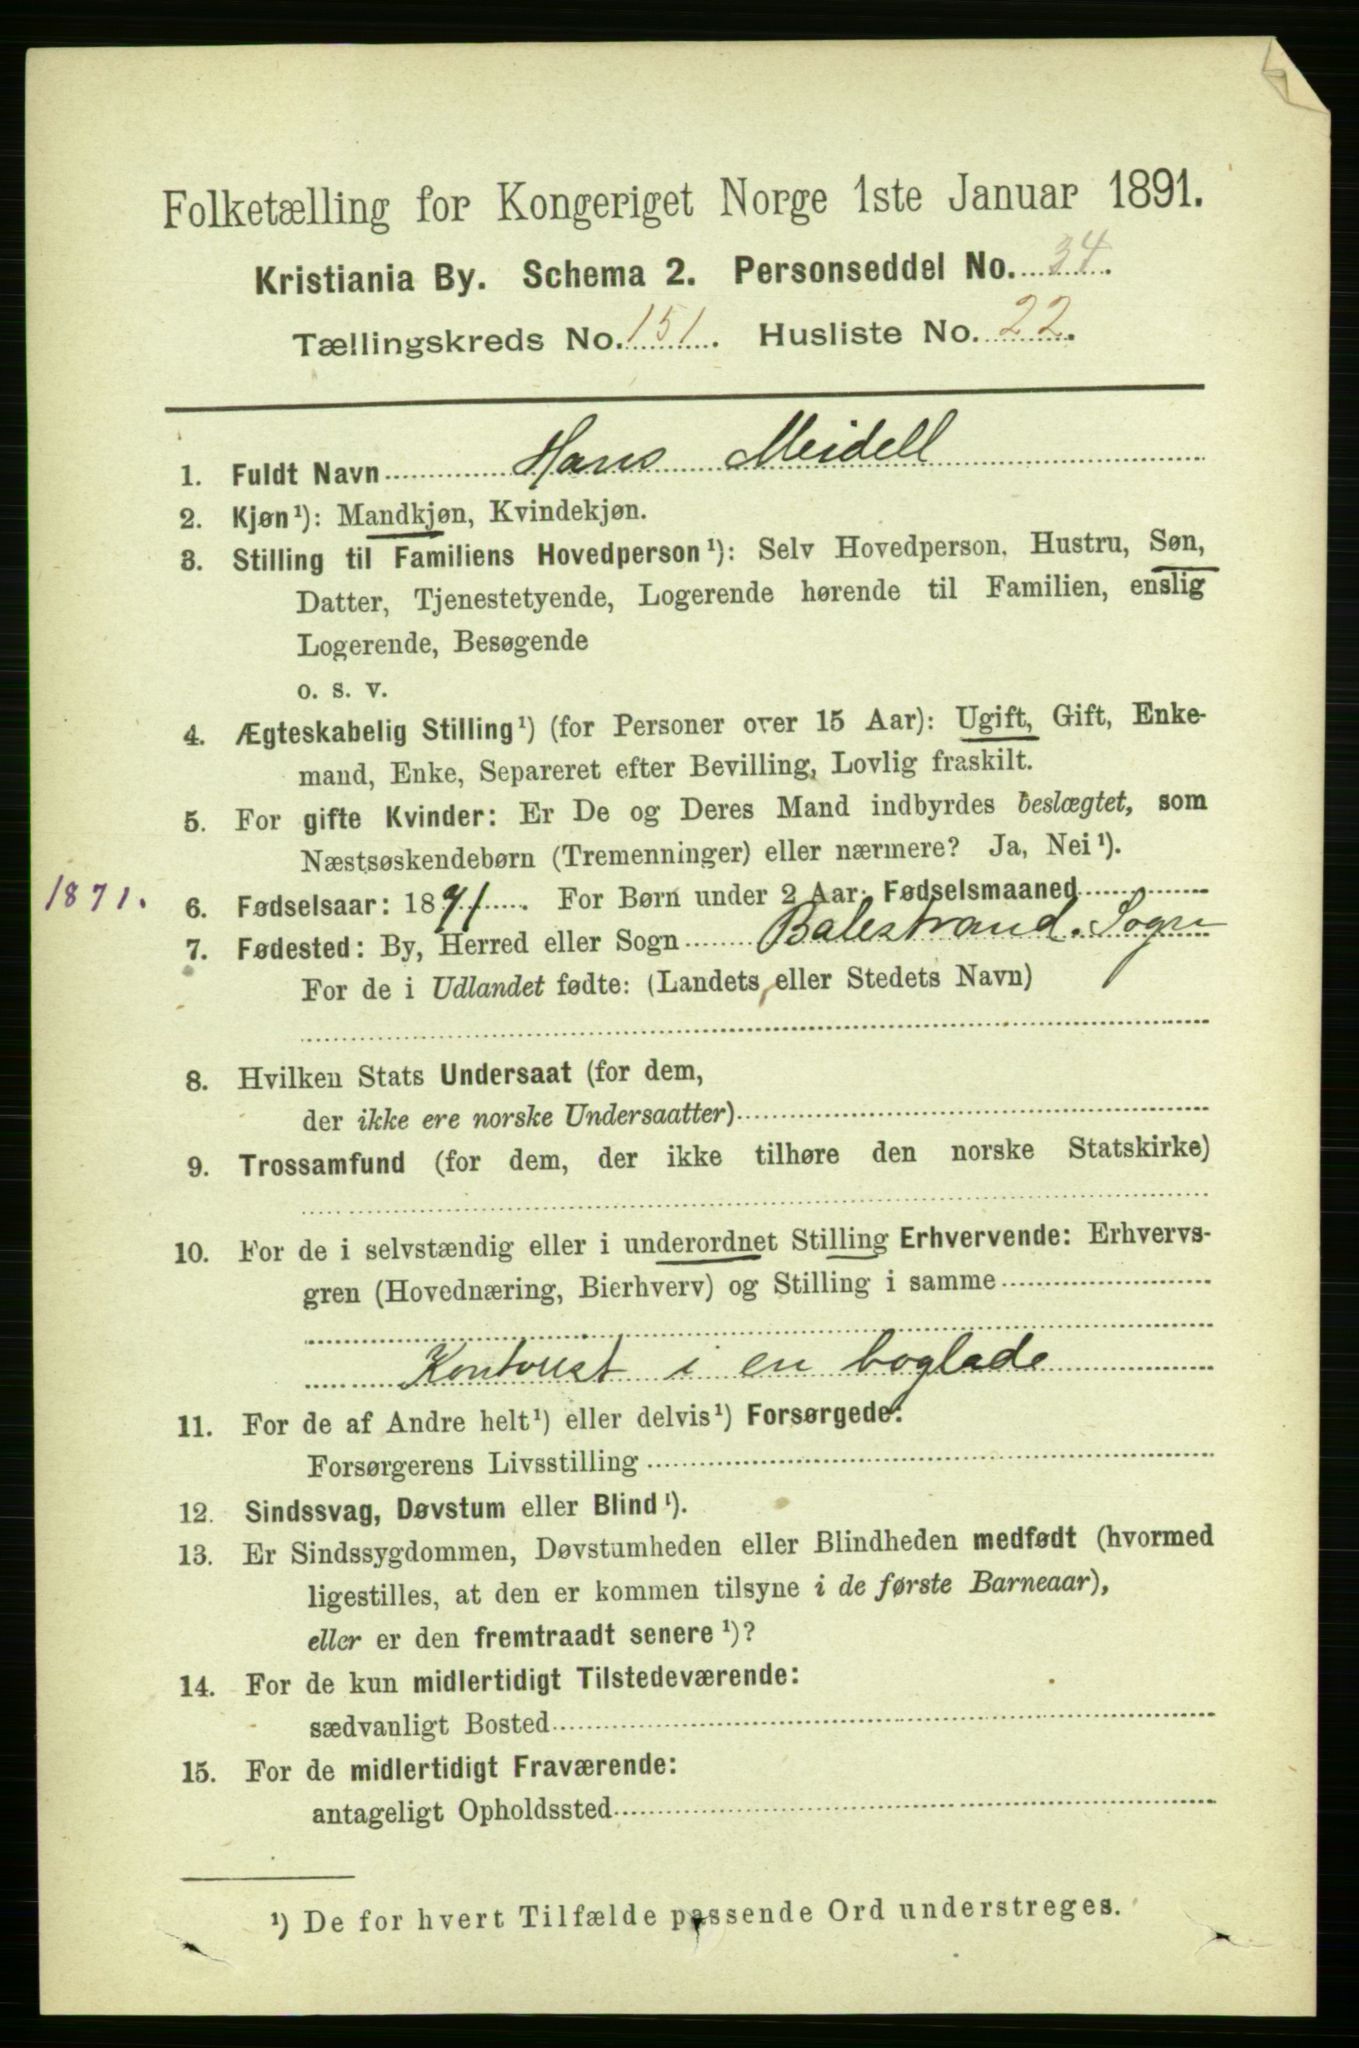 Folketælling for Kongeriget Norge 1ste Januar 1891.
Kristiania By. Schema 2. Personseddel No. 34.
Tællingskreds No. 151. Husliste No. 22.
1. Fuldt Navn Hans Meidell
2. Kjøn¹): Mandkjøn, Kvindekjøn.
3. Stilling til Familiens Hovedperson¹): Selv Hovedperson, Hustru, Søn,
Datter, Tjenestetyende, Logerende hørende til Familien, enslig
Logerende, Besøgende
o. s. v.
4. Ægteskabelig Stilling¹) (for Personer over 15 Aar): Ugift, Gift, Enke-
mand, Enke, Separeret efter Bevilling, Lovlig fraskilt.
5. For gifte Kvinder: Er De og Deres Mand indbyrdes beslægtet, som
Næstsøskendebørn (Tremenninger) eller nærmere? Ja, Nei¹).
1871.
6. Fødselsaar: 1871. For Børn under 2 Aar: Fødselsmaaned
7. Fødested: By, Herred eller Sogn Balestrand. Sogn
For de i Udlandet fødte: (Landets eller Stedets Navn)
8. Hvilken Stats Undersaat (for dem,
der ikke ere norske Undersaatter)
9. Trossamfund (for dem, der ikke tilhøre den norske Statskirke)
10. For de i selvstændig eller i underordnet Stilling Erhvervende: Erhvervs-
gren (Hovednæring, Bierhverv) og Stilling i samme
Kontorist i en boglade
11. For de af Andre helt¹) eller delvis¹) Forsørgede:
Forsørgerens Livsstilling
12. Sindssvag, Døvstum eller Blind¹).
13. Er Sindssygdommen, Døvstumheden eller Blindheden medfødt (hvormed
ligestilles, at den er kommen tilsyne i de første Barneaar),
eller er den fremtraadt senere¹)?
14. For de kun midlertidigt Tilstedeværende:
sædvanligt Bosted
15. For de midlertidigt Fraværende:
antageligt Opholdssted
¹) De for hvert Tilfælde passende Ord understreges.